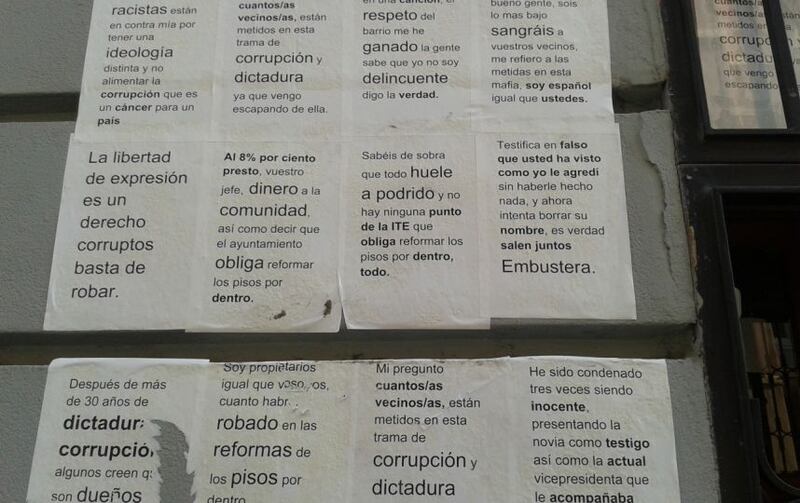 racistas están
en contra mía por
tener una
ideología
distinta y no
alimentar la
corrupción que es
un cáncer para un
país
cuantos/as
vecinos/as, están
metidos en esta
trama de
corrupción y
dictadura
ya que vengo
escapando de ella.
respeto del
barrio me he
ganado la gente
sabe que yo no soy
delincuente
digo la verdad.
bueno gente, sois
lo mas bajo
sangráis a
vuestros vecinos,
me refiero a las
metidas en esta
mafia, soy español
igual que ustedes.
cuantos/as
vecinos/as, están
metidos en esta
trama de
que vengo
escapando
La libertad
de expresión
es un
derecho
corruptos
basta de
robar.
Al 8% por ciento
presto, vuestro
jefe, dinero a la
comunidad,
así como decir que
el ayuntamiento
obliga reformar
los pisos por
dentro.
Sabéis de sobra
que todo huele
a podrido y no
hay ninguna punto
de la ITE que
obliga reformar los
pisos por dentro,
todo.
Testifica en falso
que usted ha visto
como yo le agredí
sin haberle hecho
nada, y ahora
intenta borrar su
nombre, es verdad
salen juntos
Embustera.
Después de más
de 30 años de
algunos creen
son dueños
Soy propietarios
igual que
cuanto
robado en las
reformas de
los pisos por
dentro
Mi pregunto
cuantos/as
vecinos/as, están
metidos en esta
trama de
corrupción y
dictadura
He sido condenado
tres veces siendo
inocente,
presentando la
novia como testigo
así como la actual
vicepresidenta que
le acompañaba